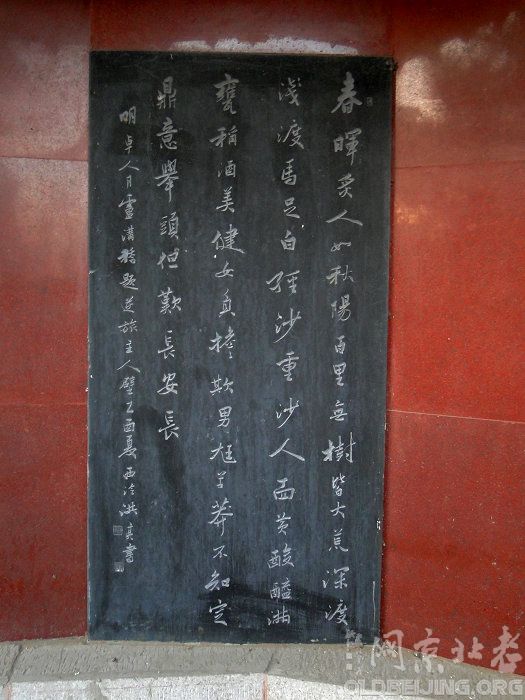 春暉炙人如秋陽百里無樹皆大荒深渡
淺渡馬足白輕沙重沙人面黃酸醯滿
甕稱酒美健女負擔欺男尪莽不知定
鼎意舉頭但歎長安長
明卓人月盧溝橋題逆旅主人壁 酉夏西泠洪 書
老北京网
OLDBEIJING.ORG